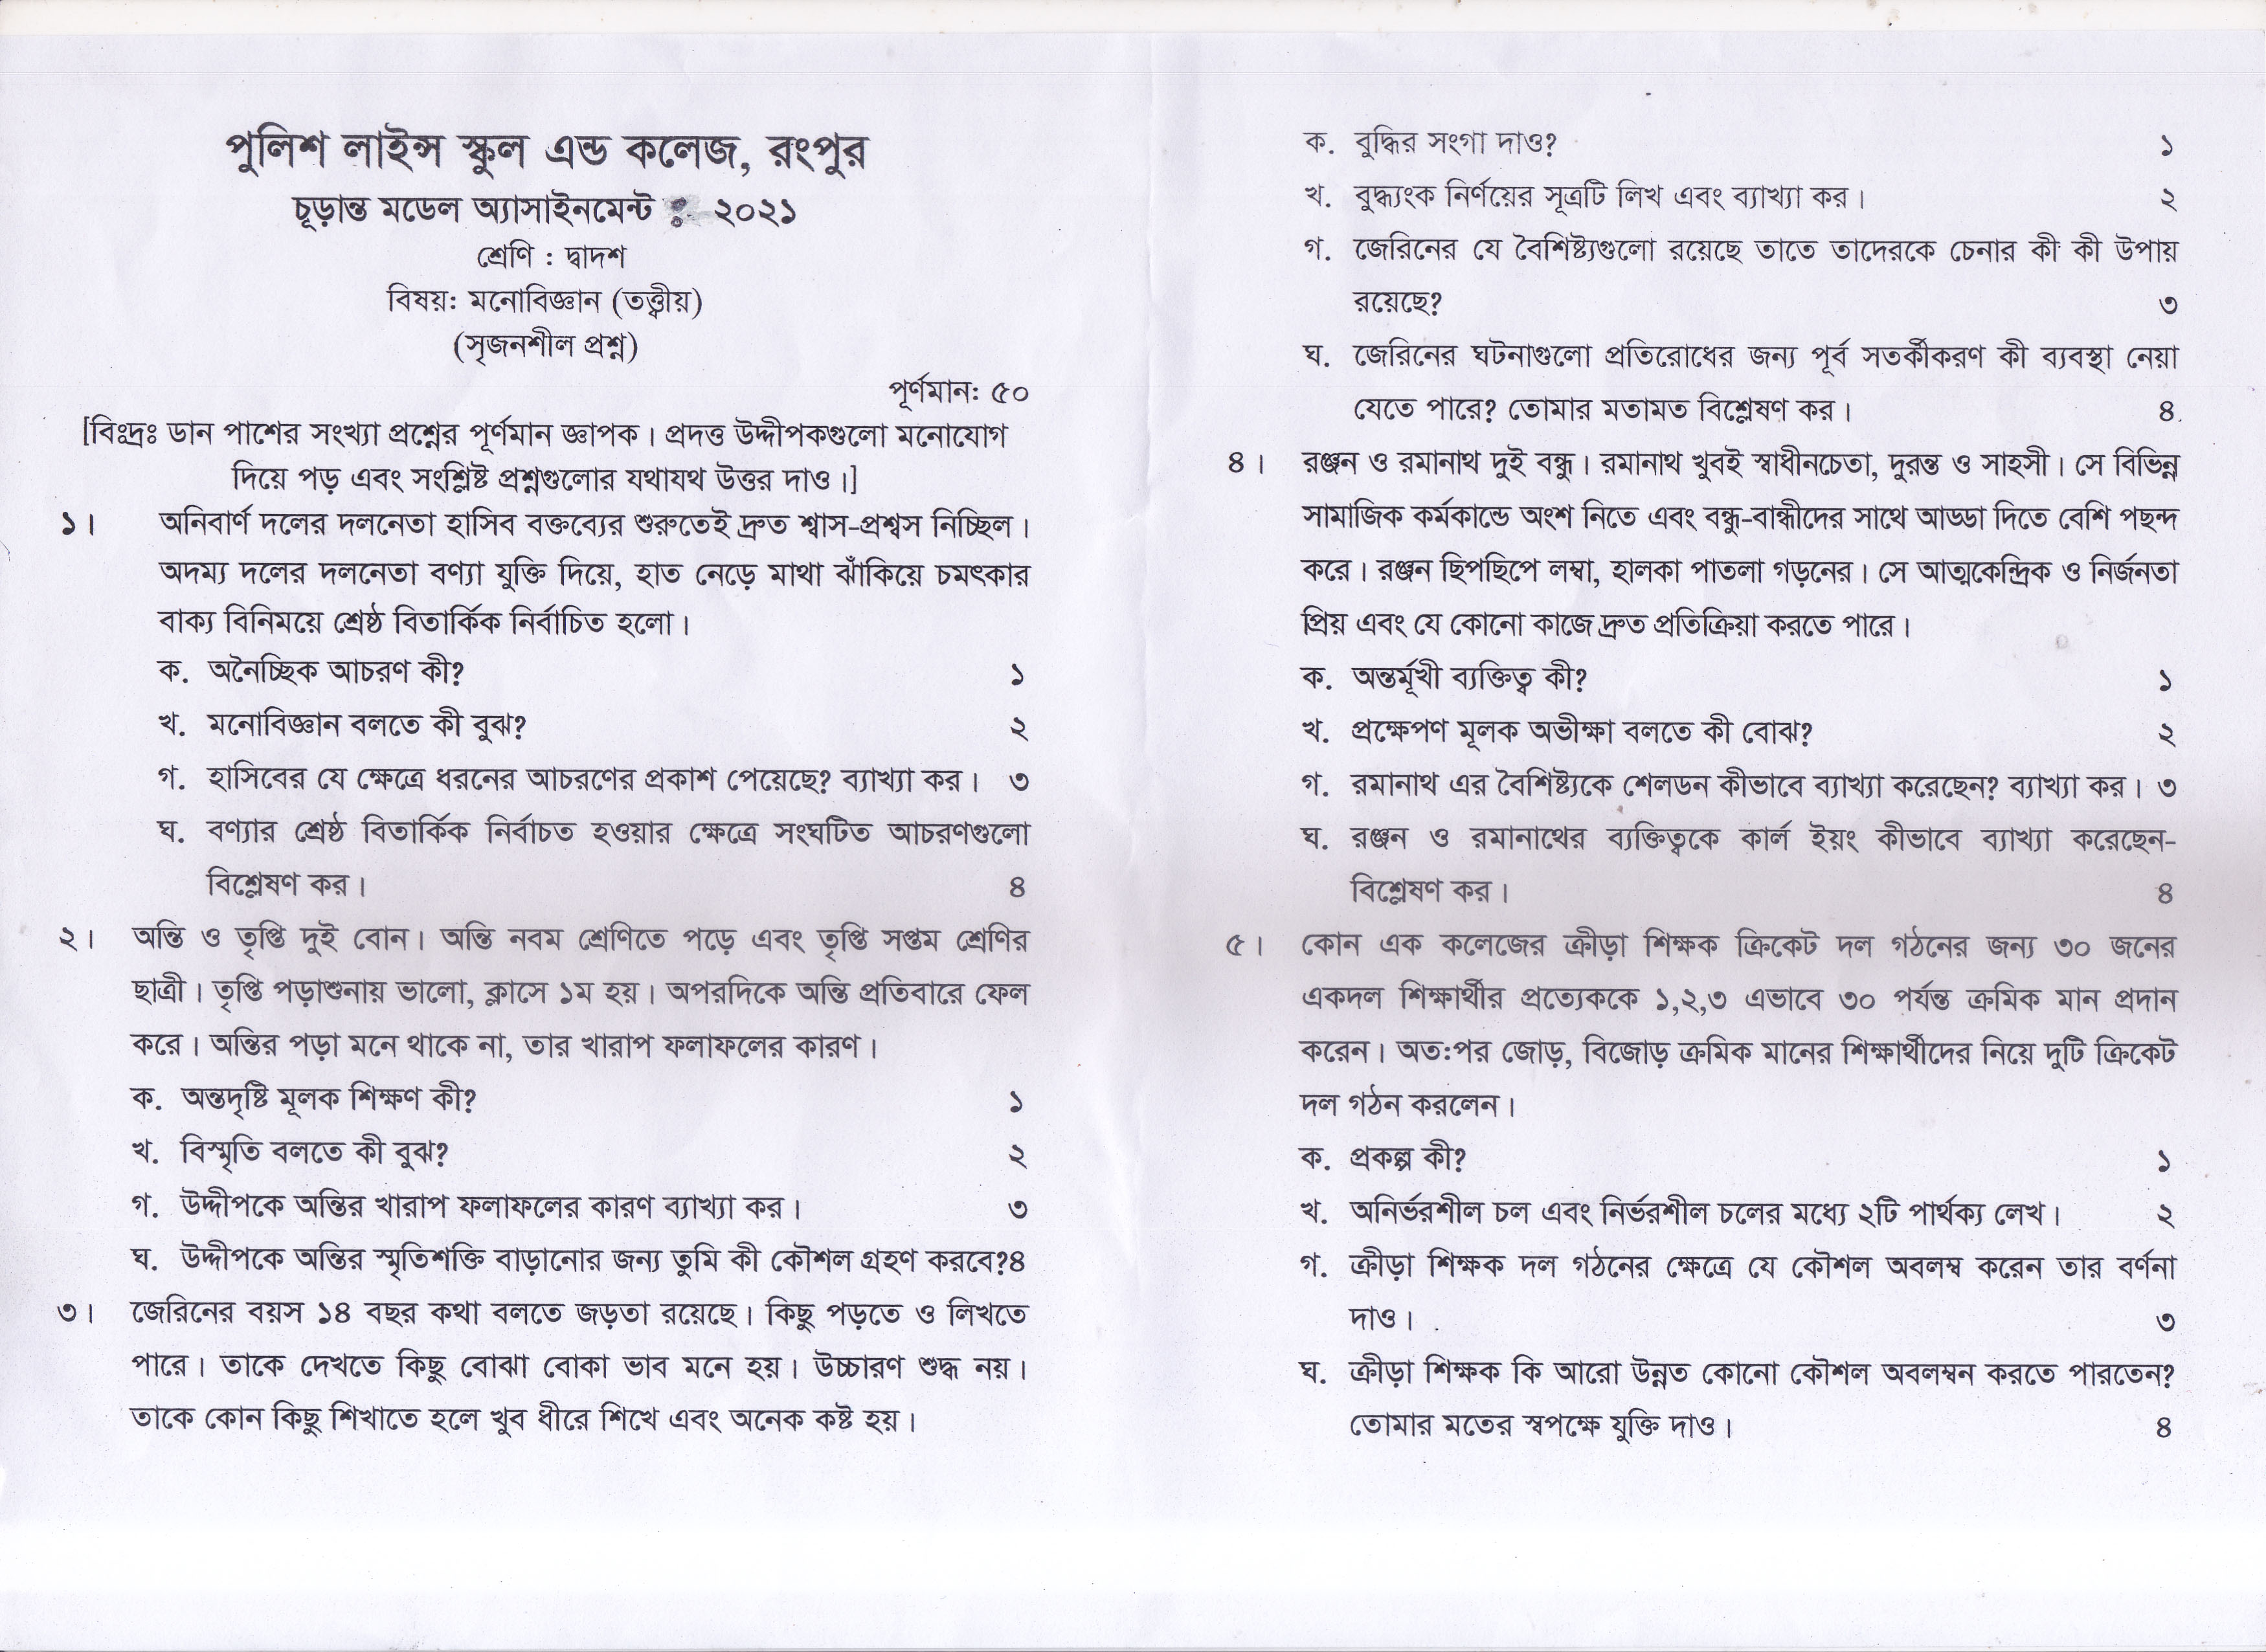 পুলিশ লাইন্স স্কুল এন্ড কলেজ, রংপুর
চূড়ান্ত মডেল অ্যাসাইনমেন্ট : ২০২১
শ্রেণি : দ্বাদশ
বিষয়: মনোবিজ্ঞান (তত্ত্বীয়)
(সৃজনশীল প্রশ্ন)
পূর্ণমান: ৫০
[বিঃদ্রঃ ডান পাশের সংখ্যা প্রশ্নের পূর্ণমান জ্ঞাপক। প্রদত্ত উদ্দীপকগুলো মনোযোগ
দিয়ে পড় এবং সংশ্লিষ্ট প্রশ্নগুলোর যথাযথ উত্তর দাও।]
১। অনিবার্ণ দলের দলনেতা হাসিব বক্তব্যের শুরুতেই দ্রুত শ্বাস-প্রশ্বস নিচ্ছিল।
অদম্য দলের দলনেতা বণ্যা যুক্তি দিয়ে, হাত নেড়ে মাথা ঝাঁকিয়ে চমৎকার
বাক্য বিনিময়ে শ্রেষ্ঠ বিতার্কিক নির্বাচিত হলো।
ক. অনৈচ্ছিক আচরণ কী? ১
খ. মনোবিজ্ঞান বলতে কী বুঝ? ২
গ. হাসিবের যে ক্ষেত্রে ধরনের আচরণের প্রকাশ পেয়েছে? ব্যাখ্যা কর। ৩
ঘ. বণ্যার শ্রেষ্ঠ বিতার্কিক নির্বাচত হওয়ার ক্ষেত্রে সংঘটিত আচরণগুলো
বিশ্লেষণ কর। ৪
২। অন্তি ও তৃপ্তি দুই বোন। অন্তি নবম শ্রেণিতে পড়ে এবং তৃপ্তি সপ্তম শ্রেণির
ছাত্রী। তৃপ্তি পড়াশুনায় ভালো, ক্লাসে ১ম হয়। অপরদিকে অন্তি প্রতিবারে ফেল
করে। অন্তির পড়া মনে থাকে না, তার খারাপ ফলাফলের কারণ।
ক. অন্তদৃষ্টি মূলক শিক্ষণ কী? ১
খ. বিস্মৃতি বলতে কী বুঝ? ২
গ. উদ্দীপকে অন্তির খারাপ ফলাফলের কারণ ব্যাখ্যা কর। ৩
ঘ. উদ্দীপকে অন্তির স্মৃতিশক্তি বাড়ানোর জন্য তুমি কী কৌশল গ্রহণ করবে?৪
৩। জেরিনের বয়স ১৪ বছর কথা বলতে জড়তা রয়েছে। কিছু পড়তে ও লিখতে
পারে। তাকে দেখতে কিছু বোঝা বোকা ভাব মনে হয়। উচ্চারণ শুদ্ধ নয়।
তাকে কোন কিছু শিখাতে হলে খুব ধীরে শিখে এবং অনেক কষ্ট হয়।
ক. বুদ্ধির সংগা দাও? ১
খ. বুদ্ধ্যংক নির্ণয়ের সূত্রটি লিখ এবং ব্যাখ্যা কর। ২
গ. জেরিনের যে বৈশিষ্ট্যগুলো রয়েছে তাতে তাদেরকে চেনার কী কী উপায়
রয়েছে? ৩
ঘ. জেরিনের ঘটনাগুলো প্রতিরোধের জন্য পূর্ব সতর্কীকরণ কী ব্যবস্থা নেয়া
যেতে পারে? তোমার মতামত বিশ্লেষণ কর। ৪
৪। রঞ্জন ও রমানাথ দুই বন্ধু। রমানাথ খুবই স্বাধীনচেতা, দুরন্ত ও সাহসী। সে বিভিন্ন
সামাজিক কর্মকান্ডে অংশ নিতে এবং বন্ধু-বান্ধীদের সাথে আড্ডা দিতে বেশি পছন্দ
করে। রঞ্জন ছিপছিপে লম্বা, হালকা পাতলা গড়নের। সে আত্মকেন্দ্রিক ও নির্জনতা
প্রিয় এবং যে কোনো কাজে দ্রুত প্রতিক্রিয়া করতে পারে।
ক. অন্তর্মূখী ব্যক্তিত্ব কী? ১
খ. প্রক্ষেপণ মূলক অভীক্ষা বলতে কী বোঝ? ২
গ. রমানাথ এর বৈশিষ্ট্যকে শেলডন কীভাবে ব্যাখ্যা করেছেন? ব্যাখ্যা কর। ৩
ঘ. রঞ্জন ও রমানাথের ব্যক্তিত্বকে কার্ল ইয়ং কীভাবে ব্যাখ্যা করেছেন-
বিশ্লেষণ কর। ৪
৫। কোন এক কলেজের ক্রীড়া শিক্ষক ক্রিকেট দল গঠনের জন্য ৩০ জনের
একদল শিক্ষার্থীর প্রত্যেককে ১,২,৩ এভাবে ৩০ পর্যন্ত ক্রমিক মান প্রদান
করেন। অত:পর জোড়, বিজোড় ক্রমিক মানের শিক্ষার্থীদের নিয়ে দুটি ক্রিকেট
দল গঠন করলেন।
ক. প্রকল্প কী? ১
খ. অনির্ভরশীল চল এবং নির্ভরশীল চলের মধ্যে ২টি পার্থক্য লেখ। ২
গ. ক্রীড়া শিক্ষক দল গঠনের ক্ষেত্রে যে কৌশল অবলম্ব করেন তার বর্ণনা
দাও। ৩
ঘ. ক্রীড়া শিক্ষক কি আরো উন্নত কোনো কৌশল অবলম্বন করতে পারতেন?
তোমার মতের স্বপক্ষে যুক্তি দাও। ৪